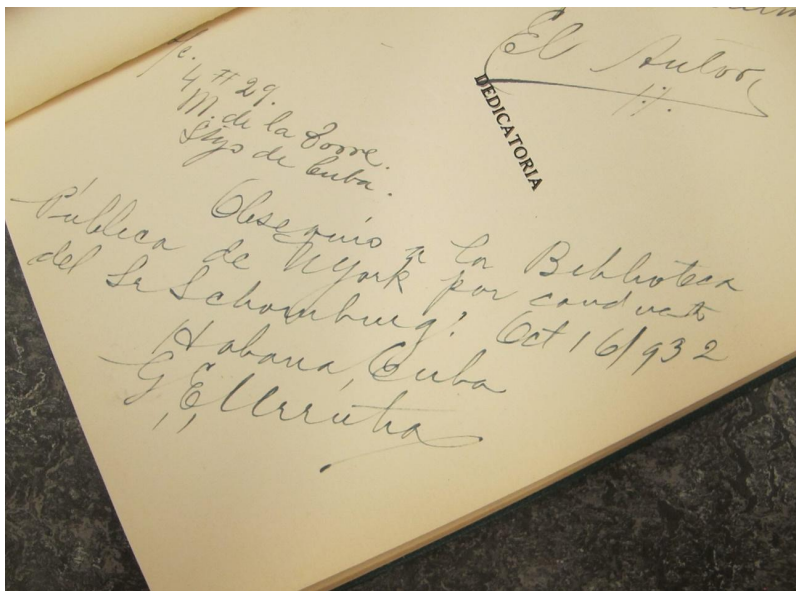 El Autor
DEDICATORIA
S/c.
4 # 29.
M. de la Torre.
Stgo de Cuba.
Obsequio a la Biblioteca
Pública de NYork por conducto
del Sr Schomburg! Oct 16/932
Habana, Cuba
G, E, Urrutia